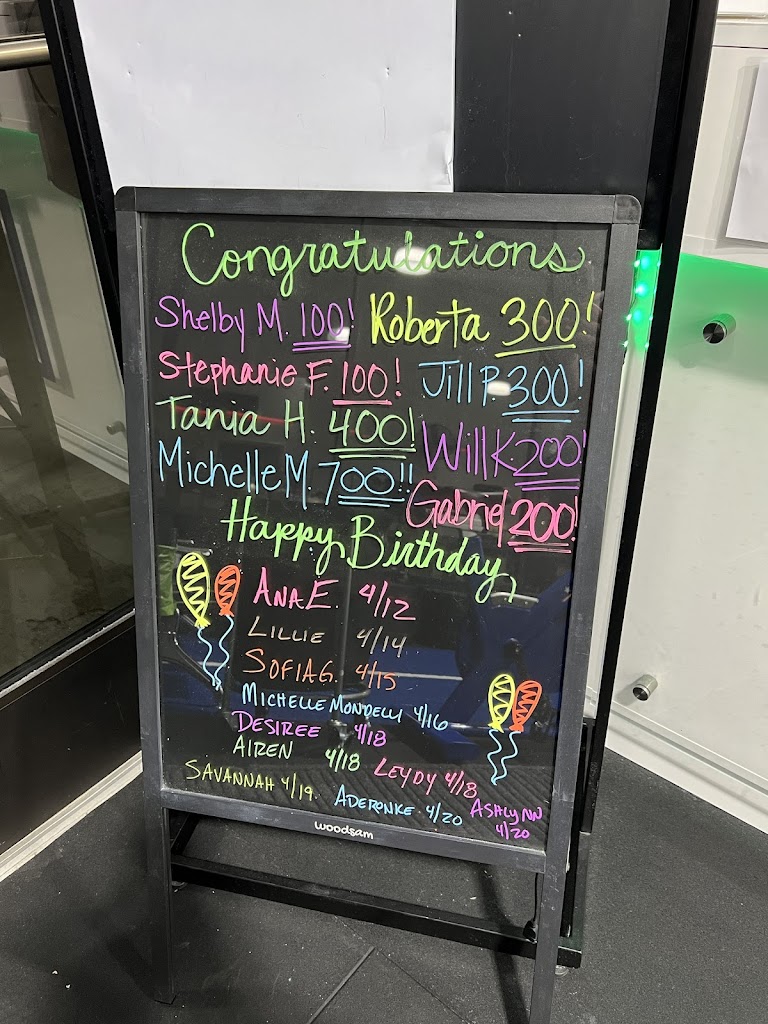 Congratulations
Shelby M. 100! Roberta 300!
Stephanie F. 100! Jill P. 300!
Tania H. 400! Will K. 200!
Michelle M. 700!! Gabriel 200!
Happy Birthday
ANA E. 4/12
LILLIE 4/14
SOFIA G. 4/15
MICHELLE MONDELLI 4/16
DESIREE 4/18
AIREN 4/18 LEYDY 4/18
SAVANNAH 4/19. ADERONKE 4/20 ASHLYNN 4/20
woodsam